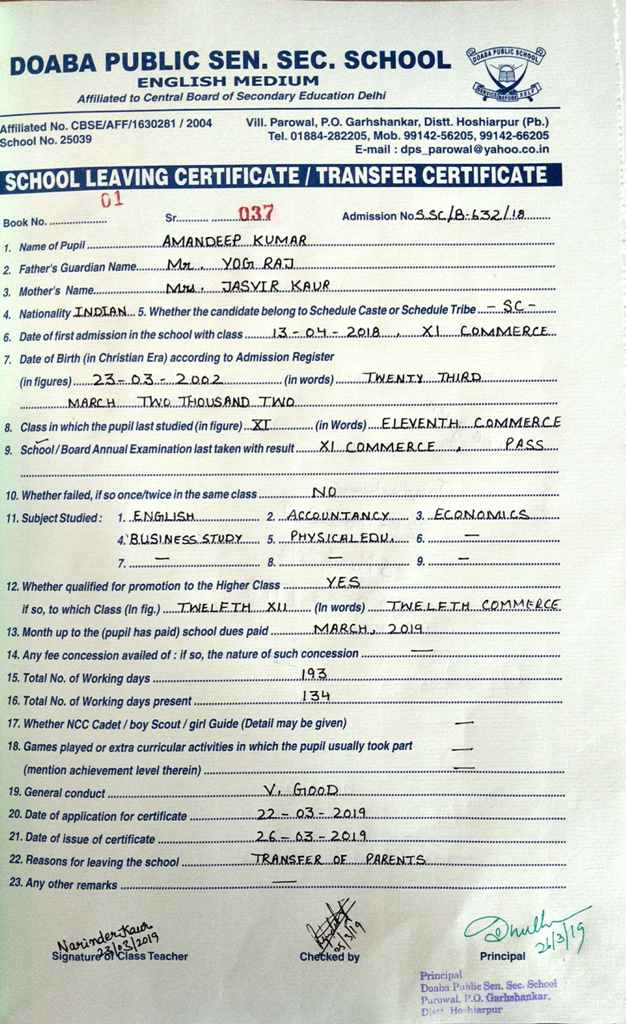 DOABA PUBLIC SEN. SEC. SCHOOL
ENGLISH MEDIUM
Affiliated to Central Board of Secondary Education Delhi
DOABA PUBLIC SCHOOL
Affiliated No. CBSE/AFF/1630281 / 2004
School No. 25039
Vill. Parowal, P.O. Garhshankar, Distt. Hoshiarpur (Pb.)
Tel. 01884-282205, Mob. 99142-56205, 99142-66205
E-mail : dps_parowal@yahoo.co.in
SCHOOL LEAVING CERTIFICATE / TRANSFER CERTIFICATE
Book No. 01 Sr. 037 Admission No. SSC/B-632/18
1. Name of Pupil AMANDEEP KUMAR
2. Father's Guardian Name Mr. YOG RAJ
3. Mother's Name Mrs. JASVIR KAUR
4. Nationality INDIAN 5. Whether the candidate belong to Schedule Caste or Schedule Tribe - SC -
6. Date of first admission in the school with class 13-04-2018, XI COMMERCE
7. Date of Birth (in Christian Era) according to Admission Register
(in figures) 23-03-2002 (in words) TWENTY THIRD
MARCH TWO THOUSAND TWO
8. Class in which the pupil last studied (in figure) XI (in Words) ELEVENTH COMMERCE
9. School / Board Annual Examination last taken with result XI COMMERCE, PASS
10. Whether failed, if so once/twice in the same class NO
11. Subject Studied : 1. ENGLISH 2. ACCOUNTANCY 3. ECONOMICS
4. BUSINESS STUDY 5. PHYSICAL EDU. 6. —
7. — 8. — 9. —
12. Whether qualified for promotion to the Higher Class YES
if so, to which Class (In fig.) TWELFTH XII (In words) TWELFTH COMMERCE
13. Month up to the (pupil has paid) school dues paid MARCH, 2019
14. Any fee concession availed of : if so, the nature of such concession —
15. Total No. of Working days 193
16. Total No. of Working days present 134
17. Whether NCC Cadet / boy Scout / girl Guide (Detail may be given) —
18. Games played or extra curricular activities in which the pupil usually took part —
(mention achievement level therein) —
19. General conduct V. GOOD
20. Date of application for certificate 22-03-2019
21. Date of issue of certificate 26-03-2019
22. Reasons for leaving the school TRANSFER OF PARENTS
23. Any other remarks —
Narinder Kaur
23/03/2019
26/3/19
Signature of Class Teacher Checked by Principal
Principal
Doaba Public Sen. Sec. School
Parowal, P.O. Garhshankar,
Distt. Hoshiarpur